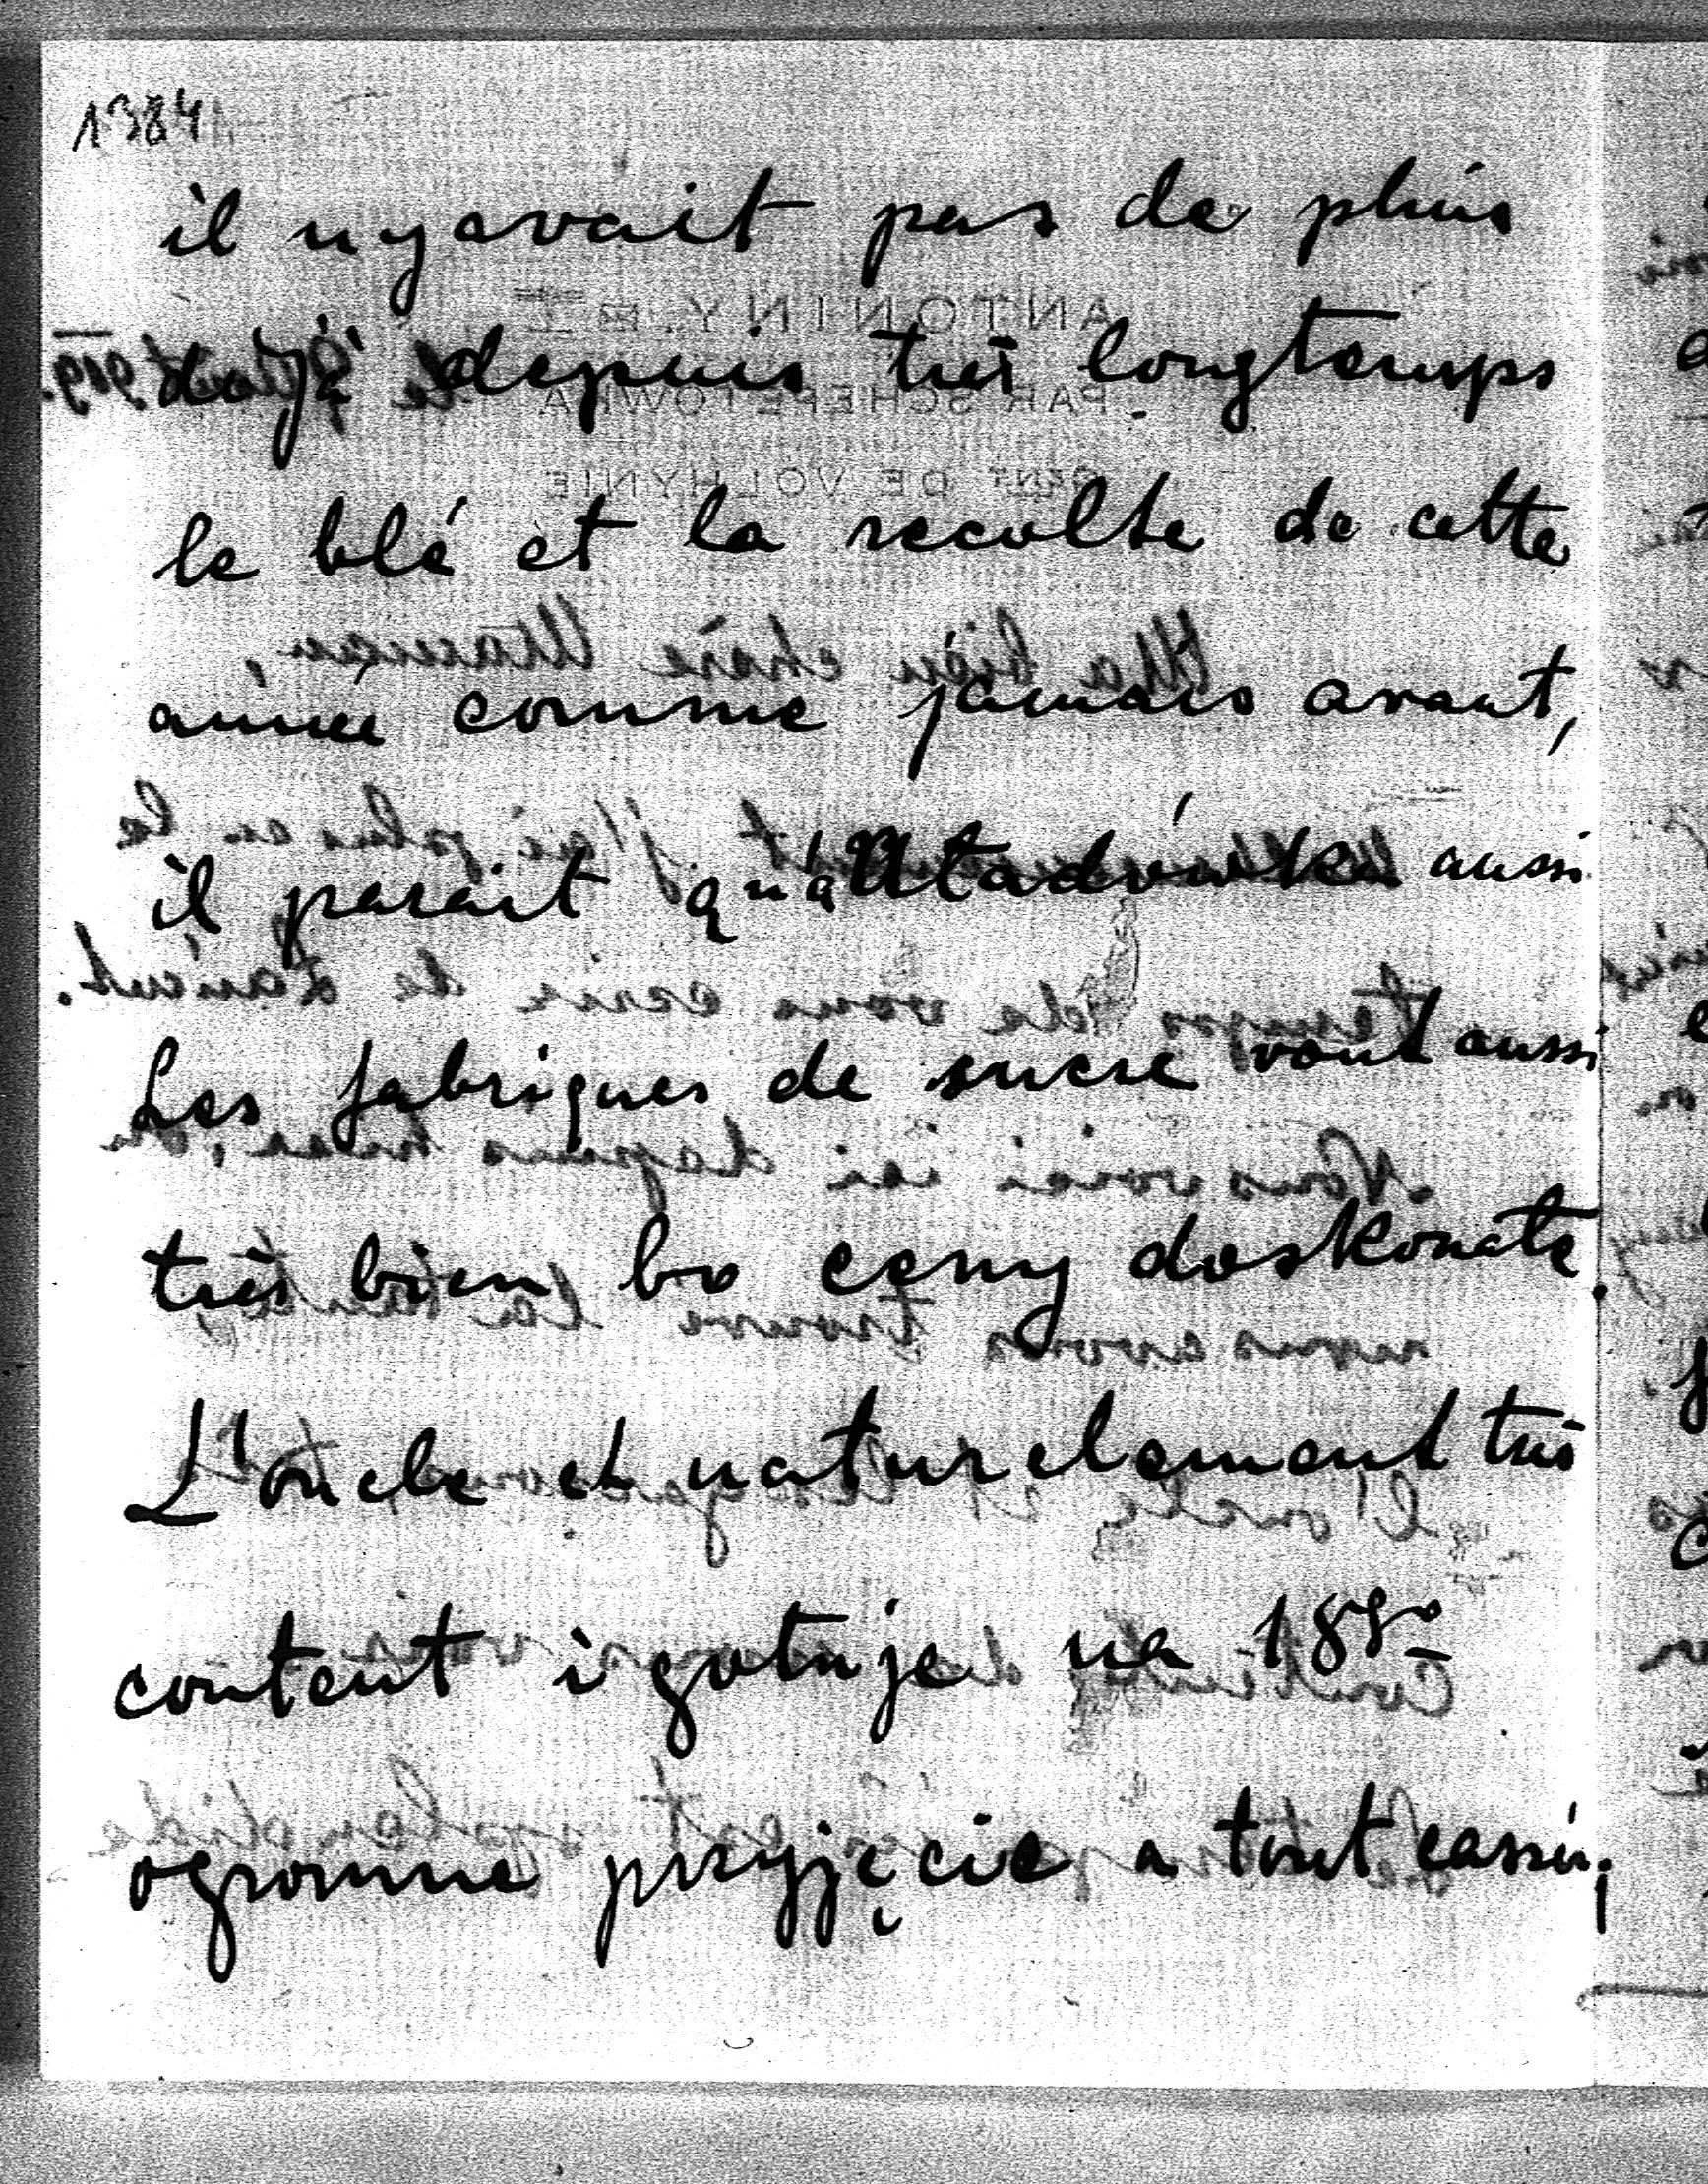 1384
il n'y avait pas de pluis
dejà depuis très longtemps
le blé et la recolte de cette
année comme jamais avant,
il parait qu'à Uładówka aussi
Les fabriques de sucre vont aussi
très bien bo ceny doskonałe.
L'oncle et naturelement très
content i gotuje na 18go
ogromne przyjęcie a tout casser;